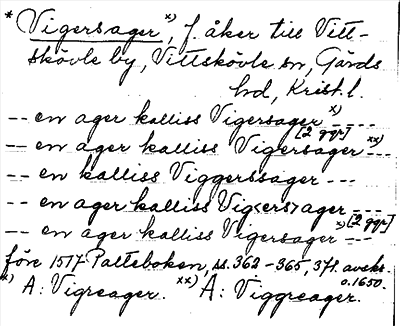 * Vigersager x), f. åker till Vitt-
skövle by, Vittskövle sn, Gärds
hd, Krist. l.
-- en ager kalliss Vigersager x) ----
[2 ggr]
-- en ager kalliss Vigersager xx) ---
-- en kalliss Viggerssager ---
-- en ager kalliss Vig<ers>ager ----
[2 ggr]
-- en ager kalliss Vigersager x) ---
före 1517 Palteboken, ss. 362-365, 371. avskr.
o. 1650.
x) A: Vigreager. xx) A: Viggreager.